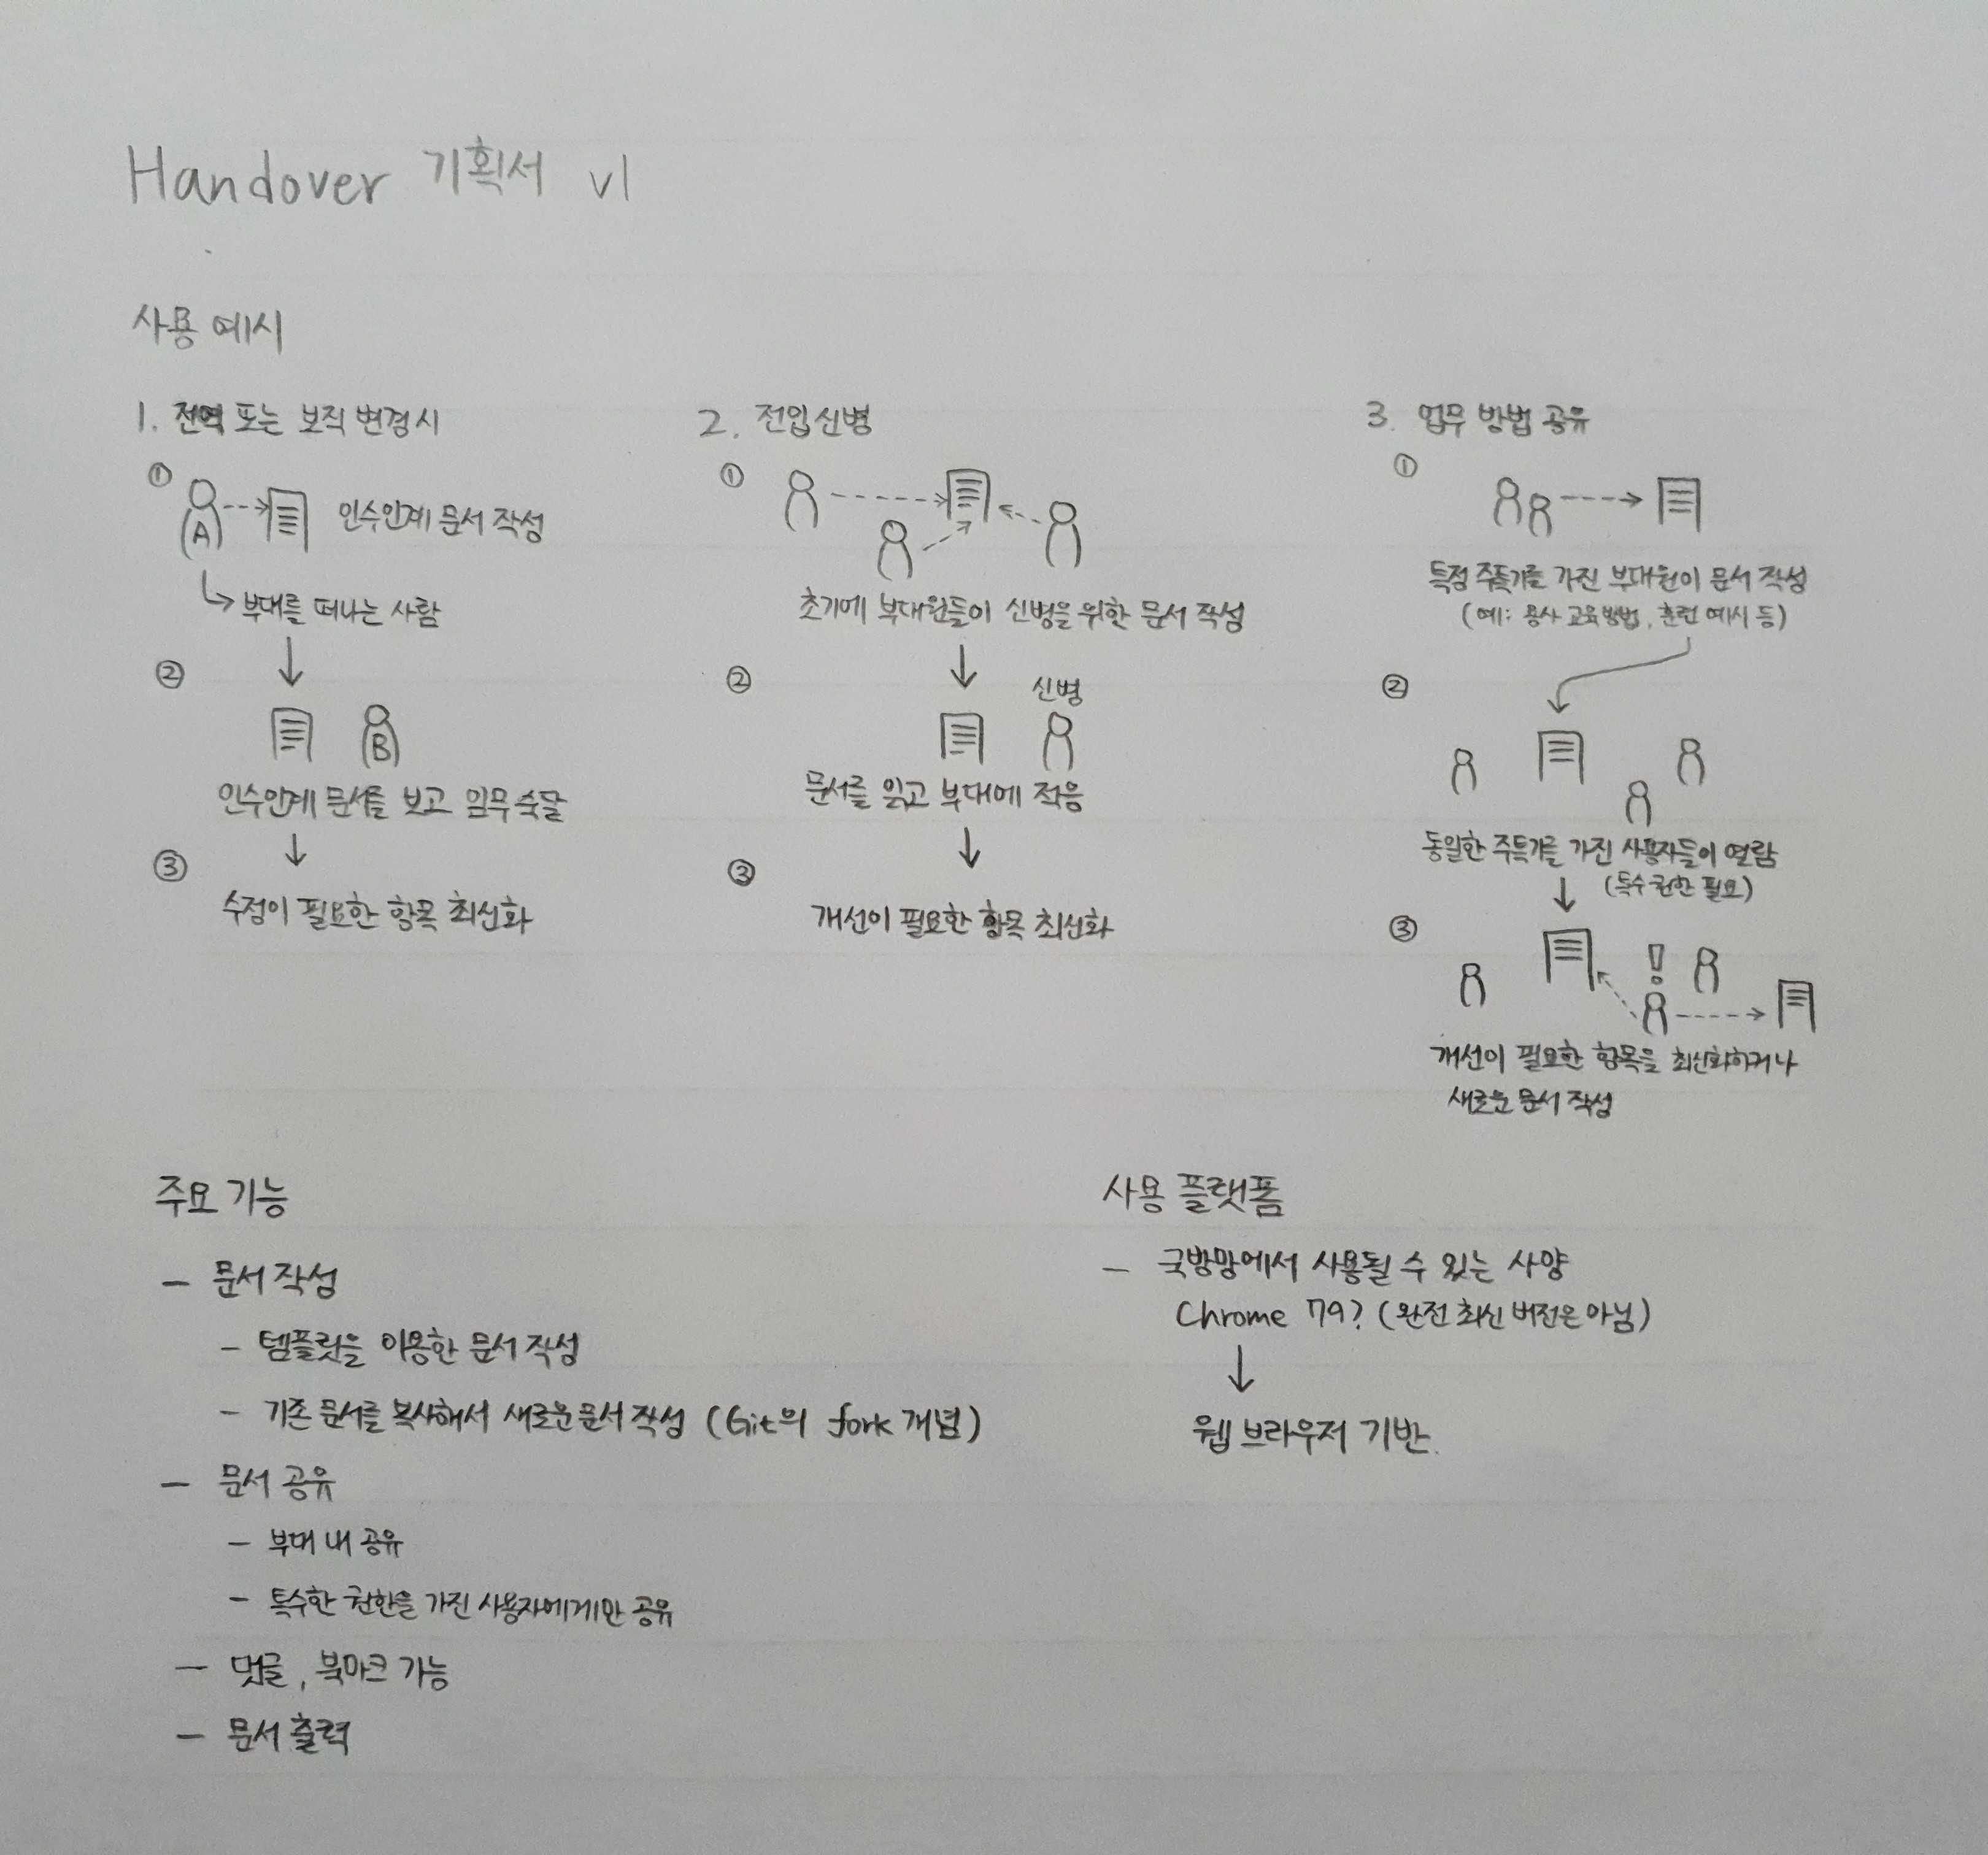 Handover 기획서 v1
사용 예시
1. 전역 또는 보직 변경시
①
A
인수인계 문서 작성
부대를 떠나는 사람
②
B
인수인계 문서를 보고 임무 숙달
③
수정이 필요한 항목 최신화
2. 전입신병
①
초기에 부대원들이 신병을 위한 문서 작성
②
신병
문서를 읽고 부대에 적응
③
개선이 필요한 항목 최신화
3. 업무 방법 공유
①
특정 주특기를 가진 부대원이 문서 작성
(예: 용사 교육방법, 훈련 예시 등)
②
동일한 주특기를 가진 사용자들이 열람
(특수 권한 필요)
③
!
개선이 필요한 항목을 최신화하거나
새로운 문서 작성
주요 기능
- 문서 작성
- 템플릿을 이용한 문서 작성
- 기존 문서를 복사해서 새로운 문서 작성 (Git의 fork 개념)
- 문서 공유
- 부대 내 공유
- 특수한 권한을 가진 사용자에게만 공유
- 댓글, 북마크 기능
- 문서 출력
사용 플랫폼
- 국방망에서 사용될 수 있는 사양
Chrome 79? (완전 최신 버전은 아님)
웹 브라우저 기반.